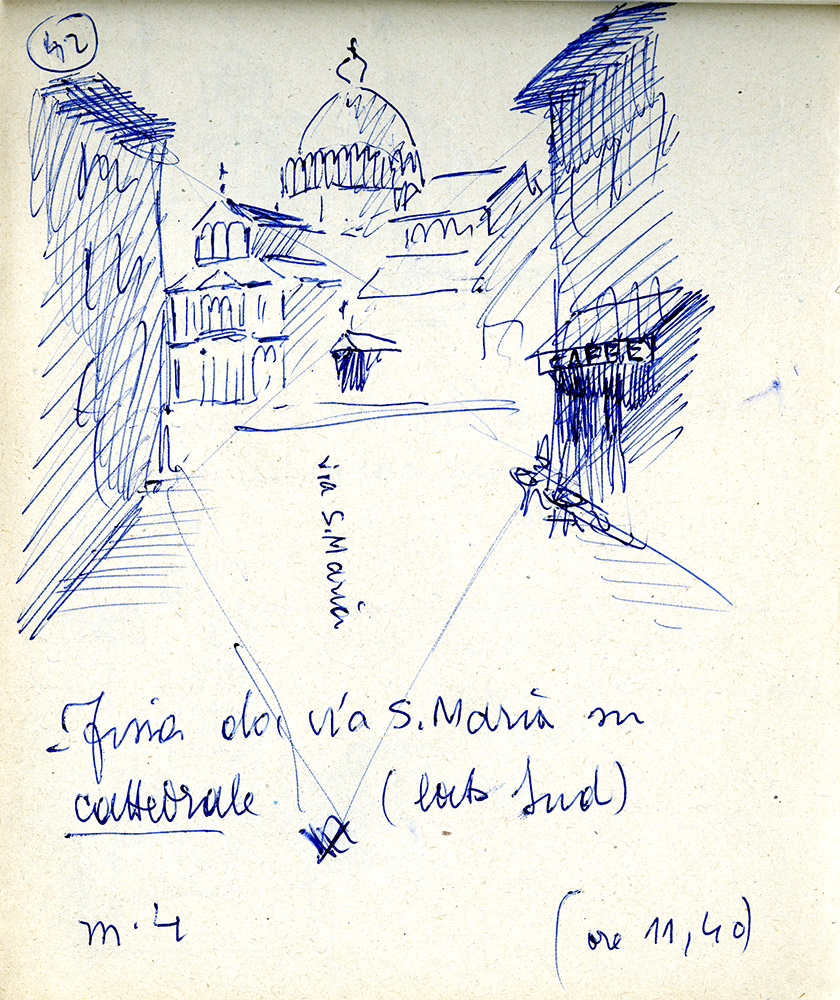 42
CAFFE
via S.Maria
da via S.Maria su
cattedrale (lato Sud)
m.4
(ore 11,40)